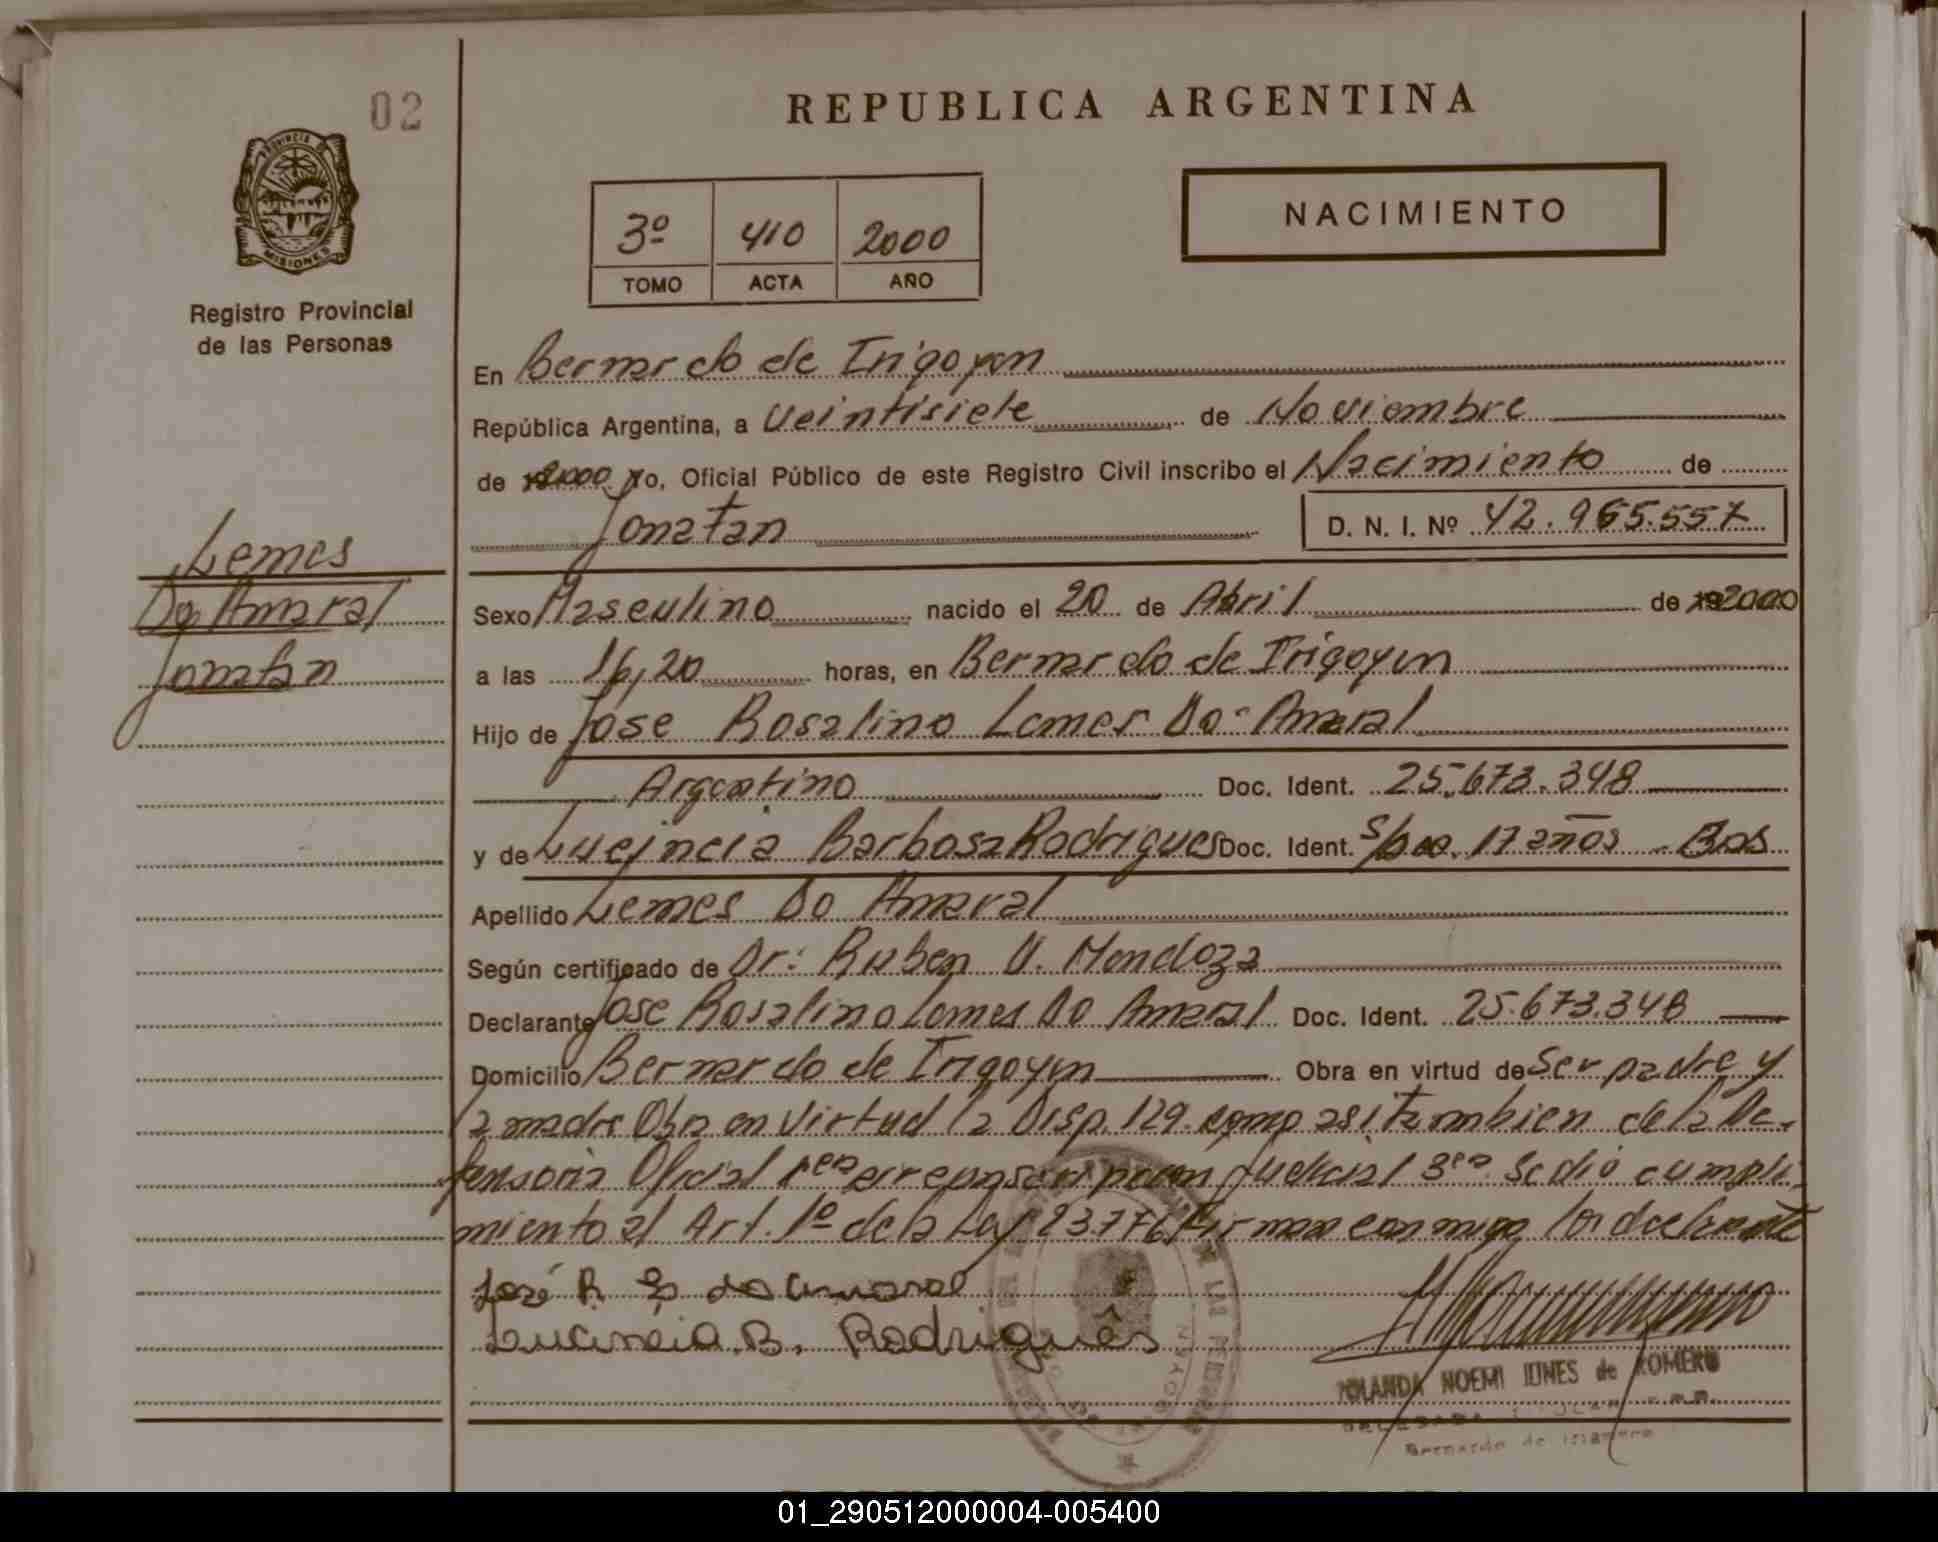 02
REPUBLICA ARGENTINA
PROVINCIA DE
MISIONES
Registro Provincial
de las Personas
3º 410 2000
TOMO ACTA AÑO
NACIMIENTO
En Bernardo de Irigoyen
República Argentina, a Veintisiete de Noviembre
de 2000 Yo, Oficial Público de este Registro Civil inscribo el Nacimiento de
Jonatan D. N. I. Nº 42.965.557
Lemes
Do Amaral
Jonatan
Sexo Masculino nacido el 20 de Abril de 2000
a las 16,20 horas, en Bernardo de Irigoyen
Hijo de Jose Rosalino Lemes Do Amaral
Argentino Doc. Ident. 25.673.348
y de Lucineia Barbosa Rodrigues Doc. Ident. S/Doc. 17 años Bras
Apellido Lemes Do Amaral
Según certificado de Dr: Ruben V. Mendoza
Declarante Jose Rosalino Lemes Do Amaral Doc. Ident. 25.673.348
Domicilio Bernardo de Irigoyen Obra en virtud de Ser padre y
la madre Obra en Virtud la Disp. 129. como asi tambien de la De-
fensoria Oficial 1era circunscripcion Judicial 3era. Se dio cumpli-
miento al Art. 1º de la Ley 23.776 Firman conmigo los declarante
José R. L do amaral
Lucineia. B. Rodriguês
YOLANDA NOEMI de ROMERO
Bernardo de Irigoyen
01_290512000004-005400